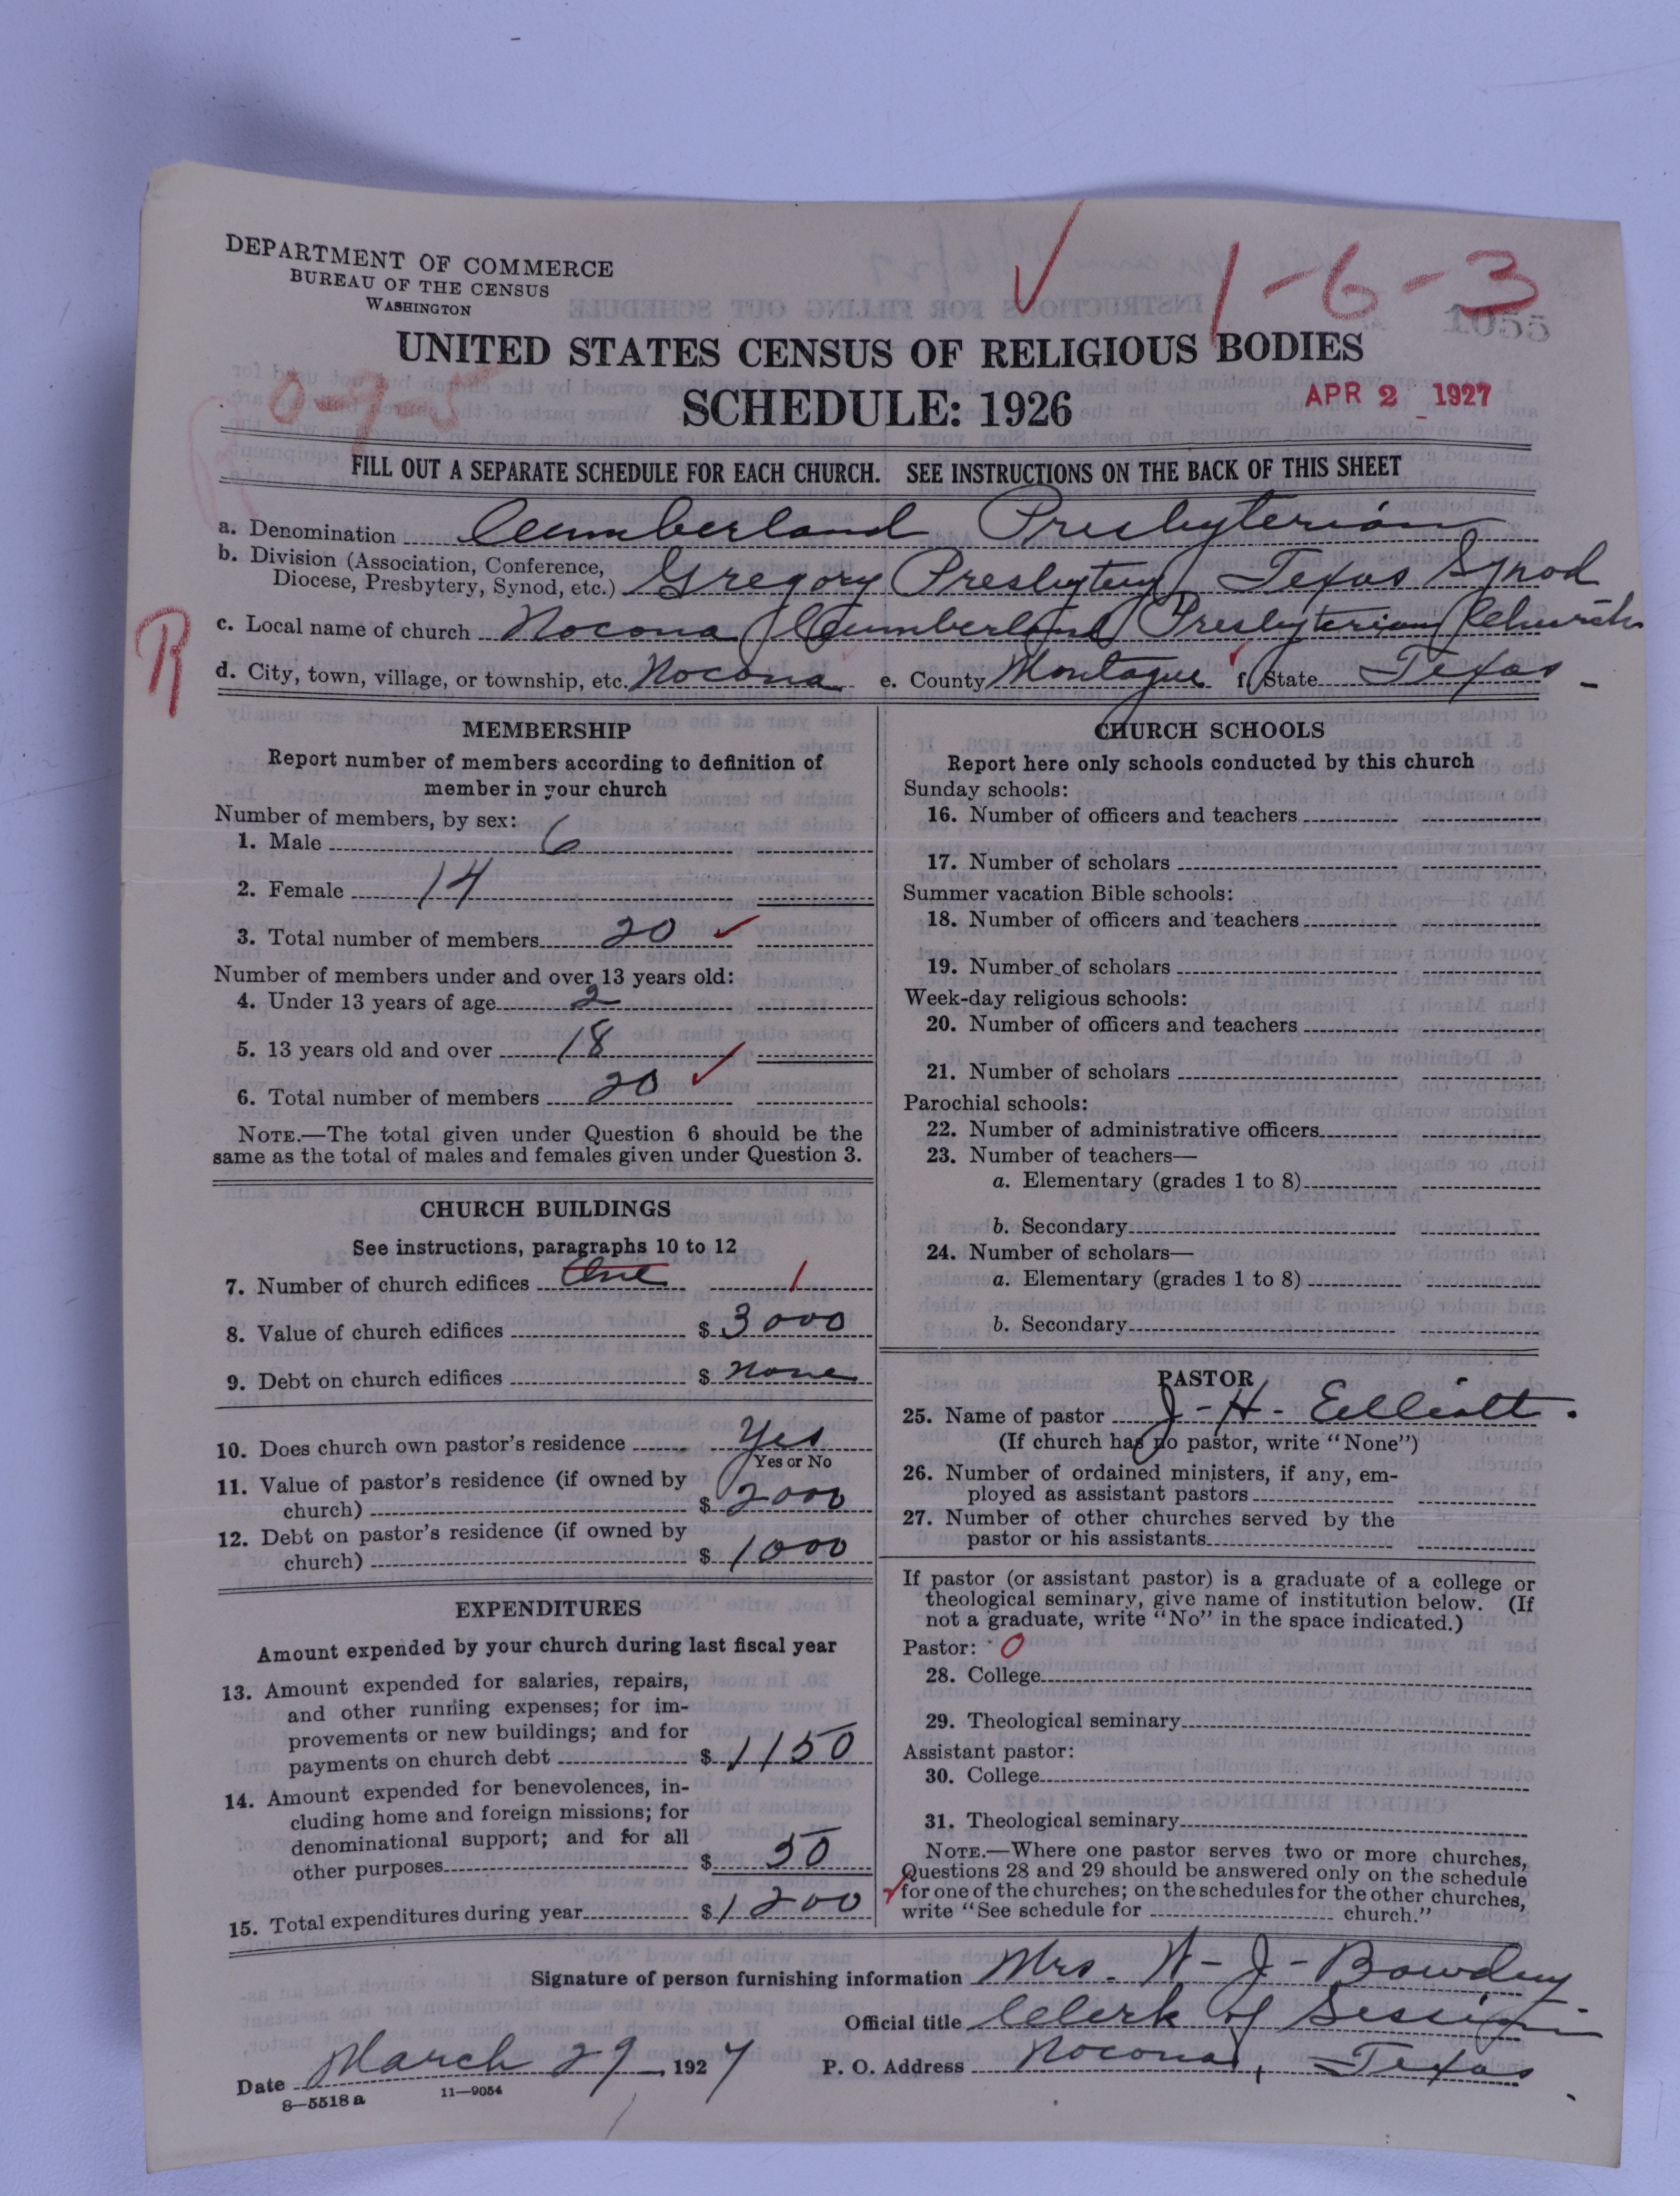 DEPARTMENT OF COMMERCE
BUREAU OF THE CENSUS
WASHINGTON
1-6-3
1055
UNITED STATES CENSUS OF RELIGIOUS BODIES
0-9-5
SCHEDULE: 1926
APR 2 1927
FILL OUT A SEPARATE SCHEDULE FOR EACH CHURCH. SEE INSTRUCTIONS ON THE BACK OF THIS SHEET
a. Denomination Cumberland Presbyterian
b. Division (Association, Conference,
Diocese, Presbytery, Synod, etc.) Gregory Presbytery Texas Synod
c. Local name of church Nocona Cumberland Presbyterian Church
R
d. City, town, village, or township, etc. Nocona e. County Montague f. State Texas
MEMBERSHIP
Report number of members according to definition of
member in your church
Number of members, by sex:
1. Male 6
2. Female 14
3. Total number of members 20
Number of members under and over 13 years old:
4. Under 13 years of age 2
5. 13 years old and over 18
6. Total number of members 20
NOTE.—The total given under Question 6 should be the
same as the total of males and females given under Question 3.
CHURCH BUILDINGS
See instructions, paragraphs 10 to 12
7. Number of church edifices One 1
8. Value of church edifices $ 3000
9. Debt on church edifices $ none
10. Does church own pastor's residence Yes
Yes or No
11. Value of pastor's residence (if owned by
church) $ 2000
12. Debt on pastor's residence (if owned by
church) $ 1000
EXPENDITURES
Amount expended by your church during last fiscal year
13. Amount expended for salaries, repairs,
and other running expenses; for im-
provements or new buildings; and for
payments on church debt $ 1150
14. Amount expended for benevolences, in-
cluding home and foreign missions; for
denominational support; and for all
other purposes $ 50
15. Total expenditures during year $ 1200
CHURCH SCHOOLS
Report here only schools conducted by this church
Sunday schools:
16. Number of officers and teachers
17. Number of scholars
Summer vacation Bible schools:
18. Number of officers and teachers
19. Number of scholars
Week-day religious schools:
20. Number of officers and teachers
21. Number of scholars
Parochial schools:
22. Number of administrative officers
23. Number of teachers—
a. Elementary (grades 1 to 8)
b. Secondary
24. Number of scholars—
a. Elementary (grades 1 to 8)
b. Secondary
PASTOR
25. Name of pastor J-H- Elliott.
(If church has no pastor, write "None")
26. Number of ordained ministers, if any, em-
ployed as assistant pastors
27. Number of other churches served by the
pastor or his assistants
If pastor (or assistant pastor) is a graduate of a college or
theological seminary, give name of institution below. (If
not a graduate, write "No" in the space indicated.)
Pastor: 0
28. College
29. Theological seminary
Assistant pastor:
30. College
31. Theological seminary
NOTE.—Where one pastor serves two or more churches,
Questions 28 and 29 should be answered only on the schedule
for one of the churches; on the schedules for the other churches,
write "See schedule for church."
Signature of person furnishing information Mrs.
Official title Clerk of Session
Date March 29, 1927 P. O. Address Nocona, Texas
8—5518 a 11—9054